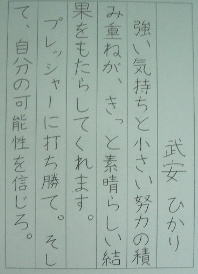 武安 ひかり
強い気持ちと小さい努力の積
み重ねが、きっと素晴らしい結
果をもたらしてくれます。
プレッシャーに打ち勝て。そし
て、自分の可能性を信じろ。